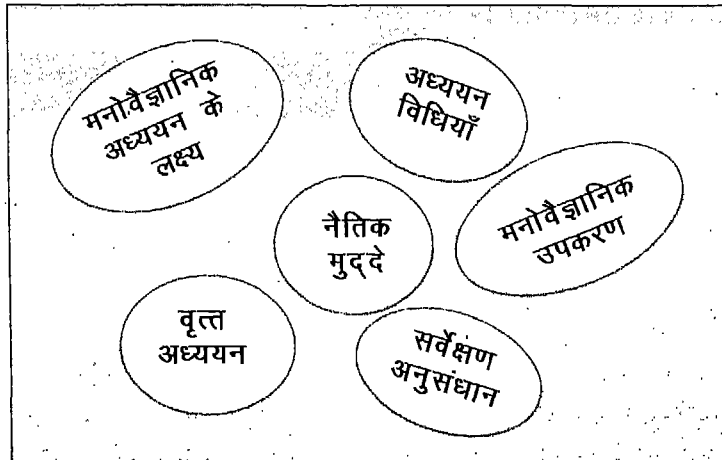 मनोवैज्ञानिक
अध्ययन के
लक्ष्य
अध्ययन
विधियाँ
नैतिक
मुद्दे
मनोवैज्ञानिक
उपकरण
वृत्त
अध्ययन
सर्वेक्षण
अनुसंधान